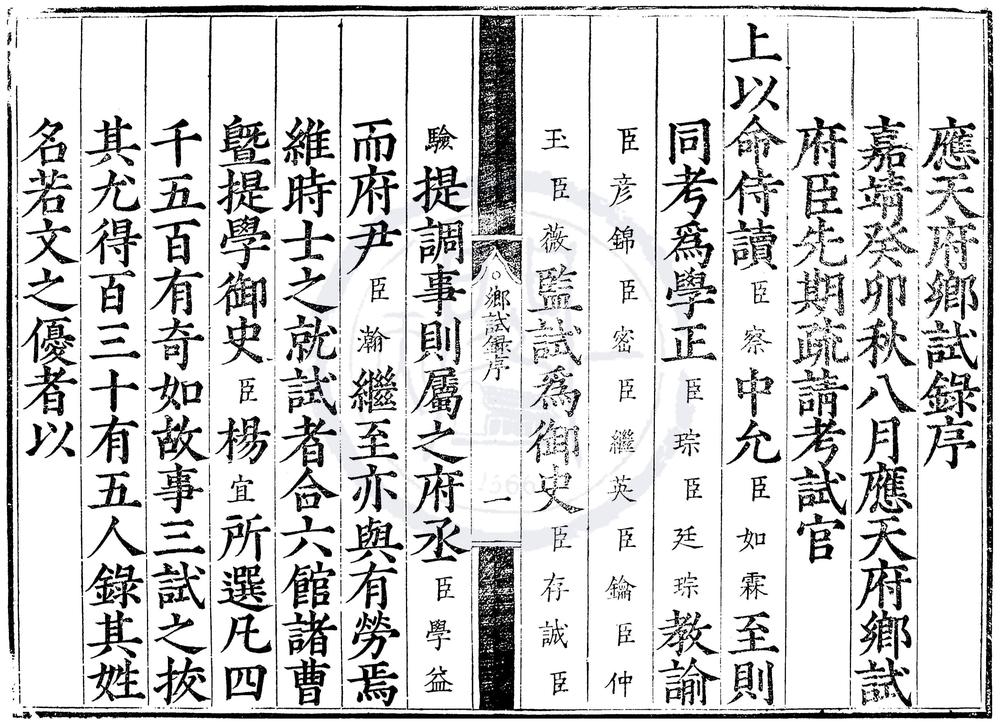 應天府鄉試錄序
嘉靖癸卯秋八月應天府鄉試
府臣先期疏請考試官
上以命侍讀臣察中允臣如霖至則
同考爲學正臣琮臣廷琮教諭
臣彦錦臣密臣繼英臣鑰臣仲
玉臣薇監試爲御史臣存誠臣
鄉試錄序
一
驗提調事則屬之府丞臣學益
而府尹臣瀚繼至亦與有勞焉
維時士之就試者合六館諸曹
曁提學御史臣楊宜所選凡四
千五百有奇如故事三試之拔
其尤得百三十有五人錄其姓
名若文之優者以